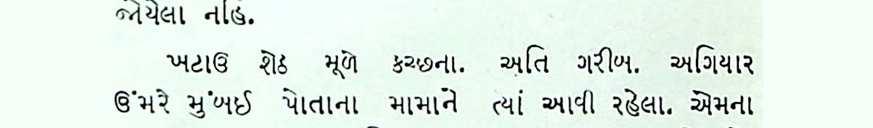 જોયેલા નહિ.
ખટાઉ શેઠ મૂળે કચ્છના. અતિ ગરીબ. અગિયાર
ઉંમરે મુંબઈ પોતાના મામાને ત્યાં આવી રહેલા. એમના